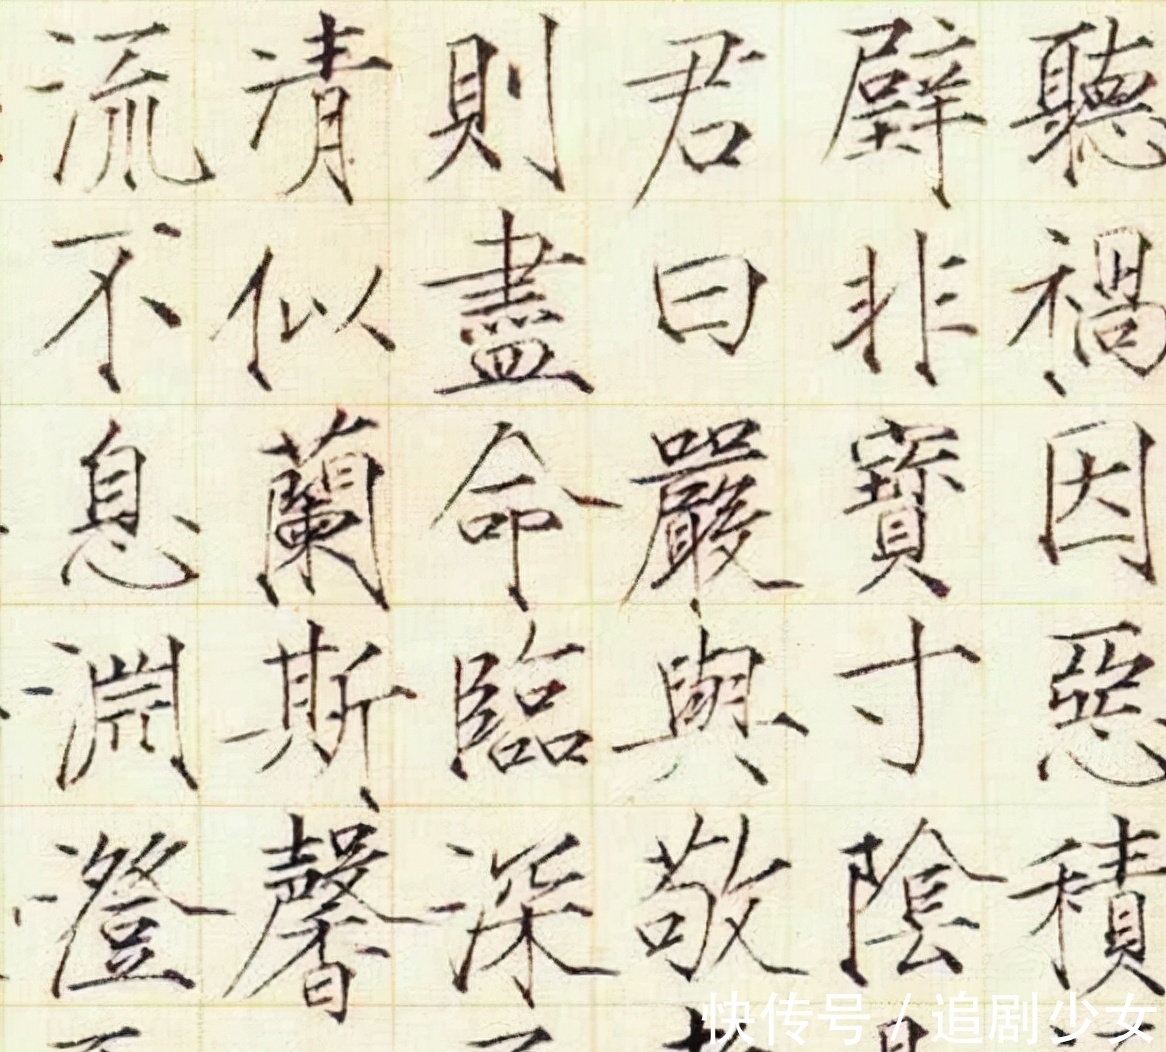 聽禍因惡積
璧非寶寸陰
君曰嚴與敬
則盡命臨深
凊似蘭斯馨
流不息淵澄
快传号 / 追剧少女